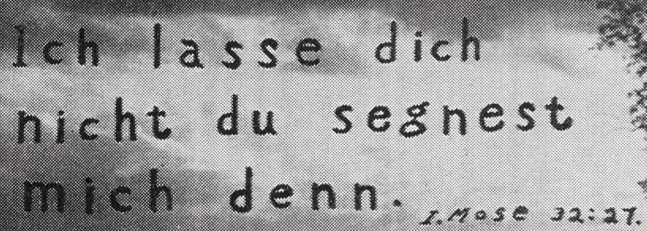 Ich lasse dich
nicht du segnest
mich denn.
I. Mose 32:27.